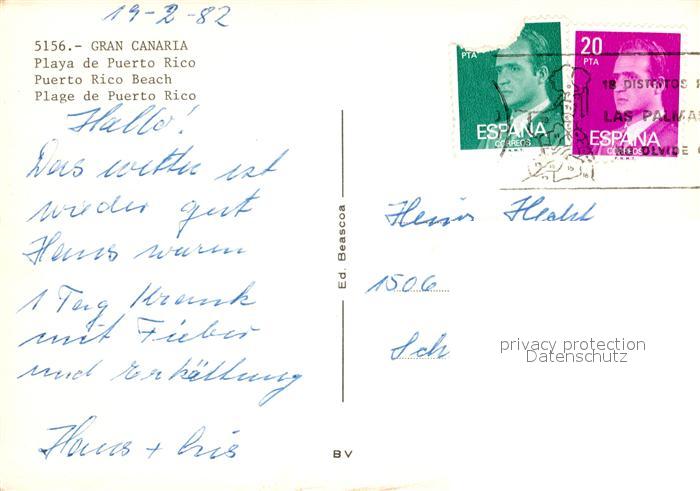 19-2-82
5156.- GRAN CANARIA
Playa de Puerto Rico
Puerto Rico Beach
Plage de Puerto Rico
Hallo!
Das wetter ist
wieder gut
Hans waren
1 Tag Krank
mit Fieber
und Erkältung
Hans + Iris
Ed. Beascoa
BV
PTA
ESPAÑA
CORREOS
F.N.M.T.
20
PTA
ESPAÑA
CORREOS
F.N.M.T.
18 DISTINTOS
LAS PALMAS
NO OLVIDE
Heinz Hecht
1506
Sch
privacy protection
Datenschutz